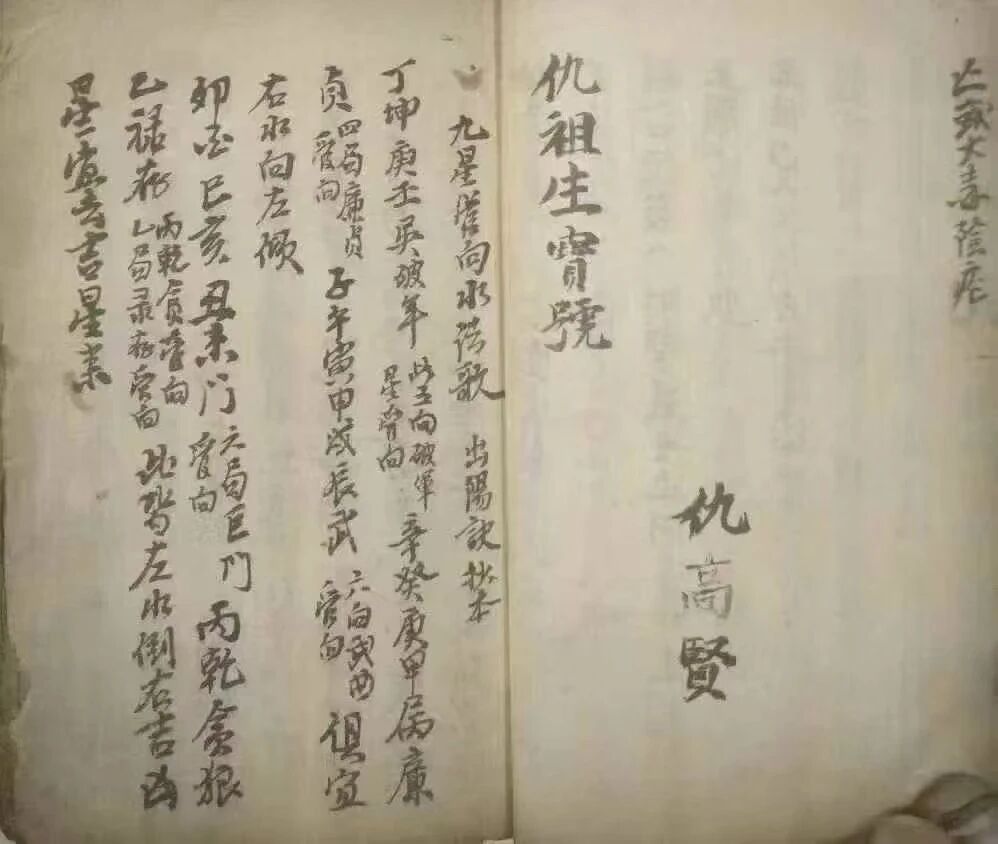 亡戟大毒陰疮
仇祖生寶號
仇高賢
九星管向水法歌 出陽訣抄本
丁坤庚壬癸破军 此五向破軍星管向 辛癸庚甲屬廉
貞 四局廉貞管向 子午寅甲戌辰武 六向武曲管向 俱宜
右水向左倾
卯酉巳亥丑未门 六局巨门管向 丙乾贪狠
乙禄存 丙乾貪管向 乙局录存管向 此皆左水倒右吉凶
星宜去吉星来